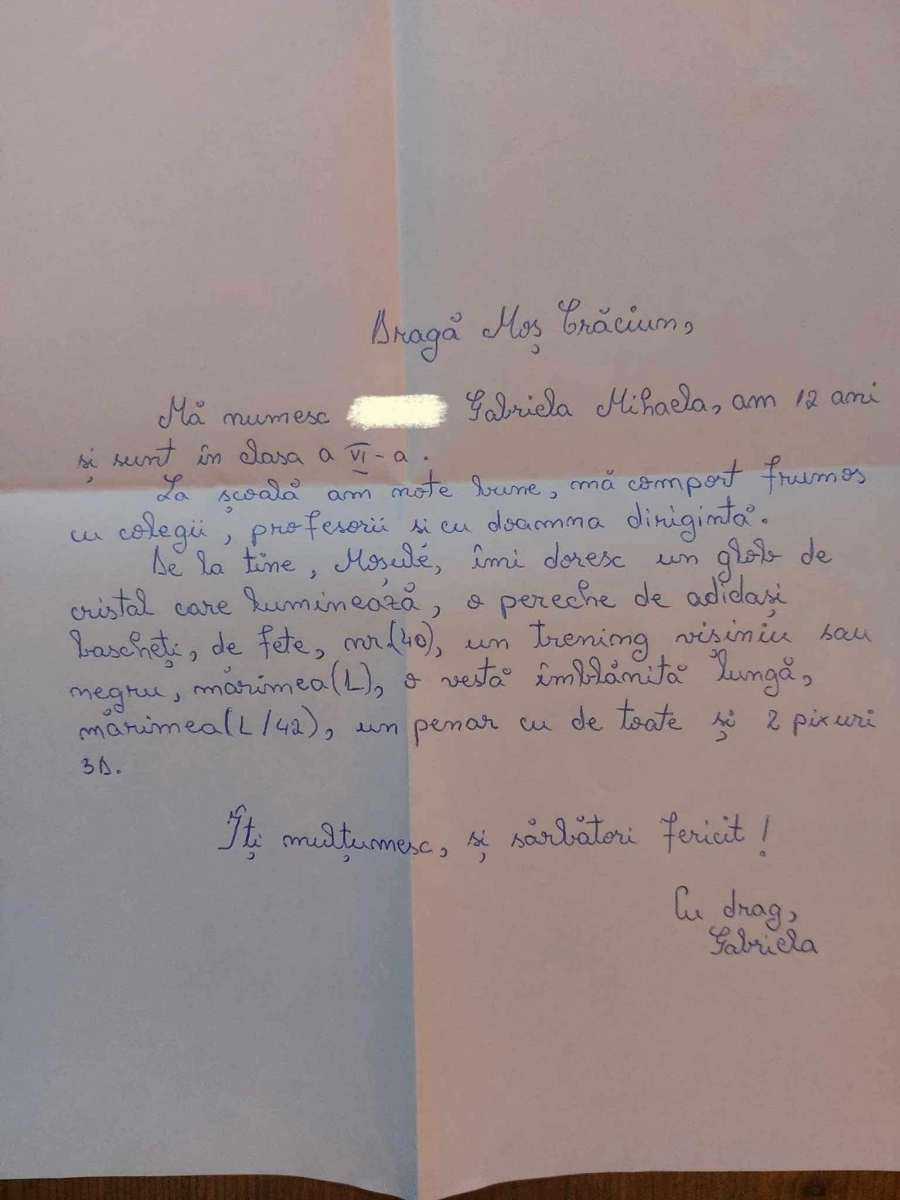 Dragă Moș Crăciun,
Mă numesc Gabriela Mihaela, am 12 ani
și sunt în clasa a VI-a.
La școală am note bune, mă comport frumos
cu colegii, profesorii si cu doamna dirigintă.
De la tine, Moșule, îmi doresc un glob de
cristal care luminează, o pereche de adidași
bascheți, de fete, nr(40), un trening vișiniu sau
negru, mărimea(L), o vestă îmblănită lungă,
mărimea(L/42), un penar cu de toate și 2 pixuri
3D.
Îți mulțumesc, și sărbători fericit!
Cu drag,
Gabriela